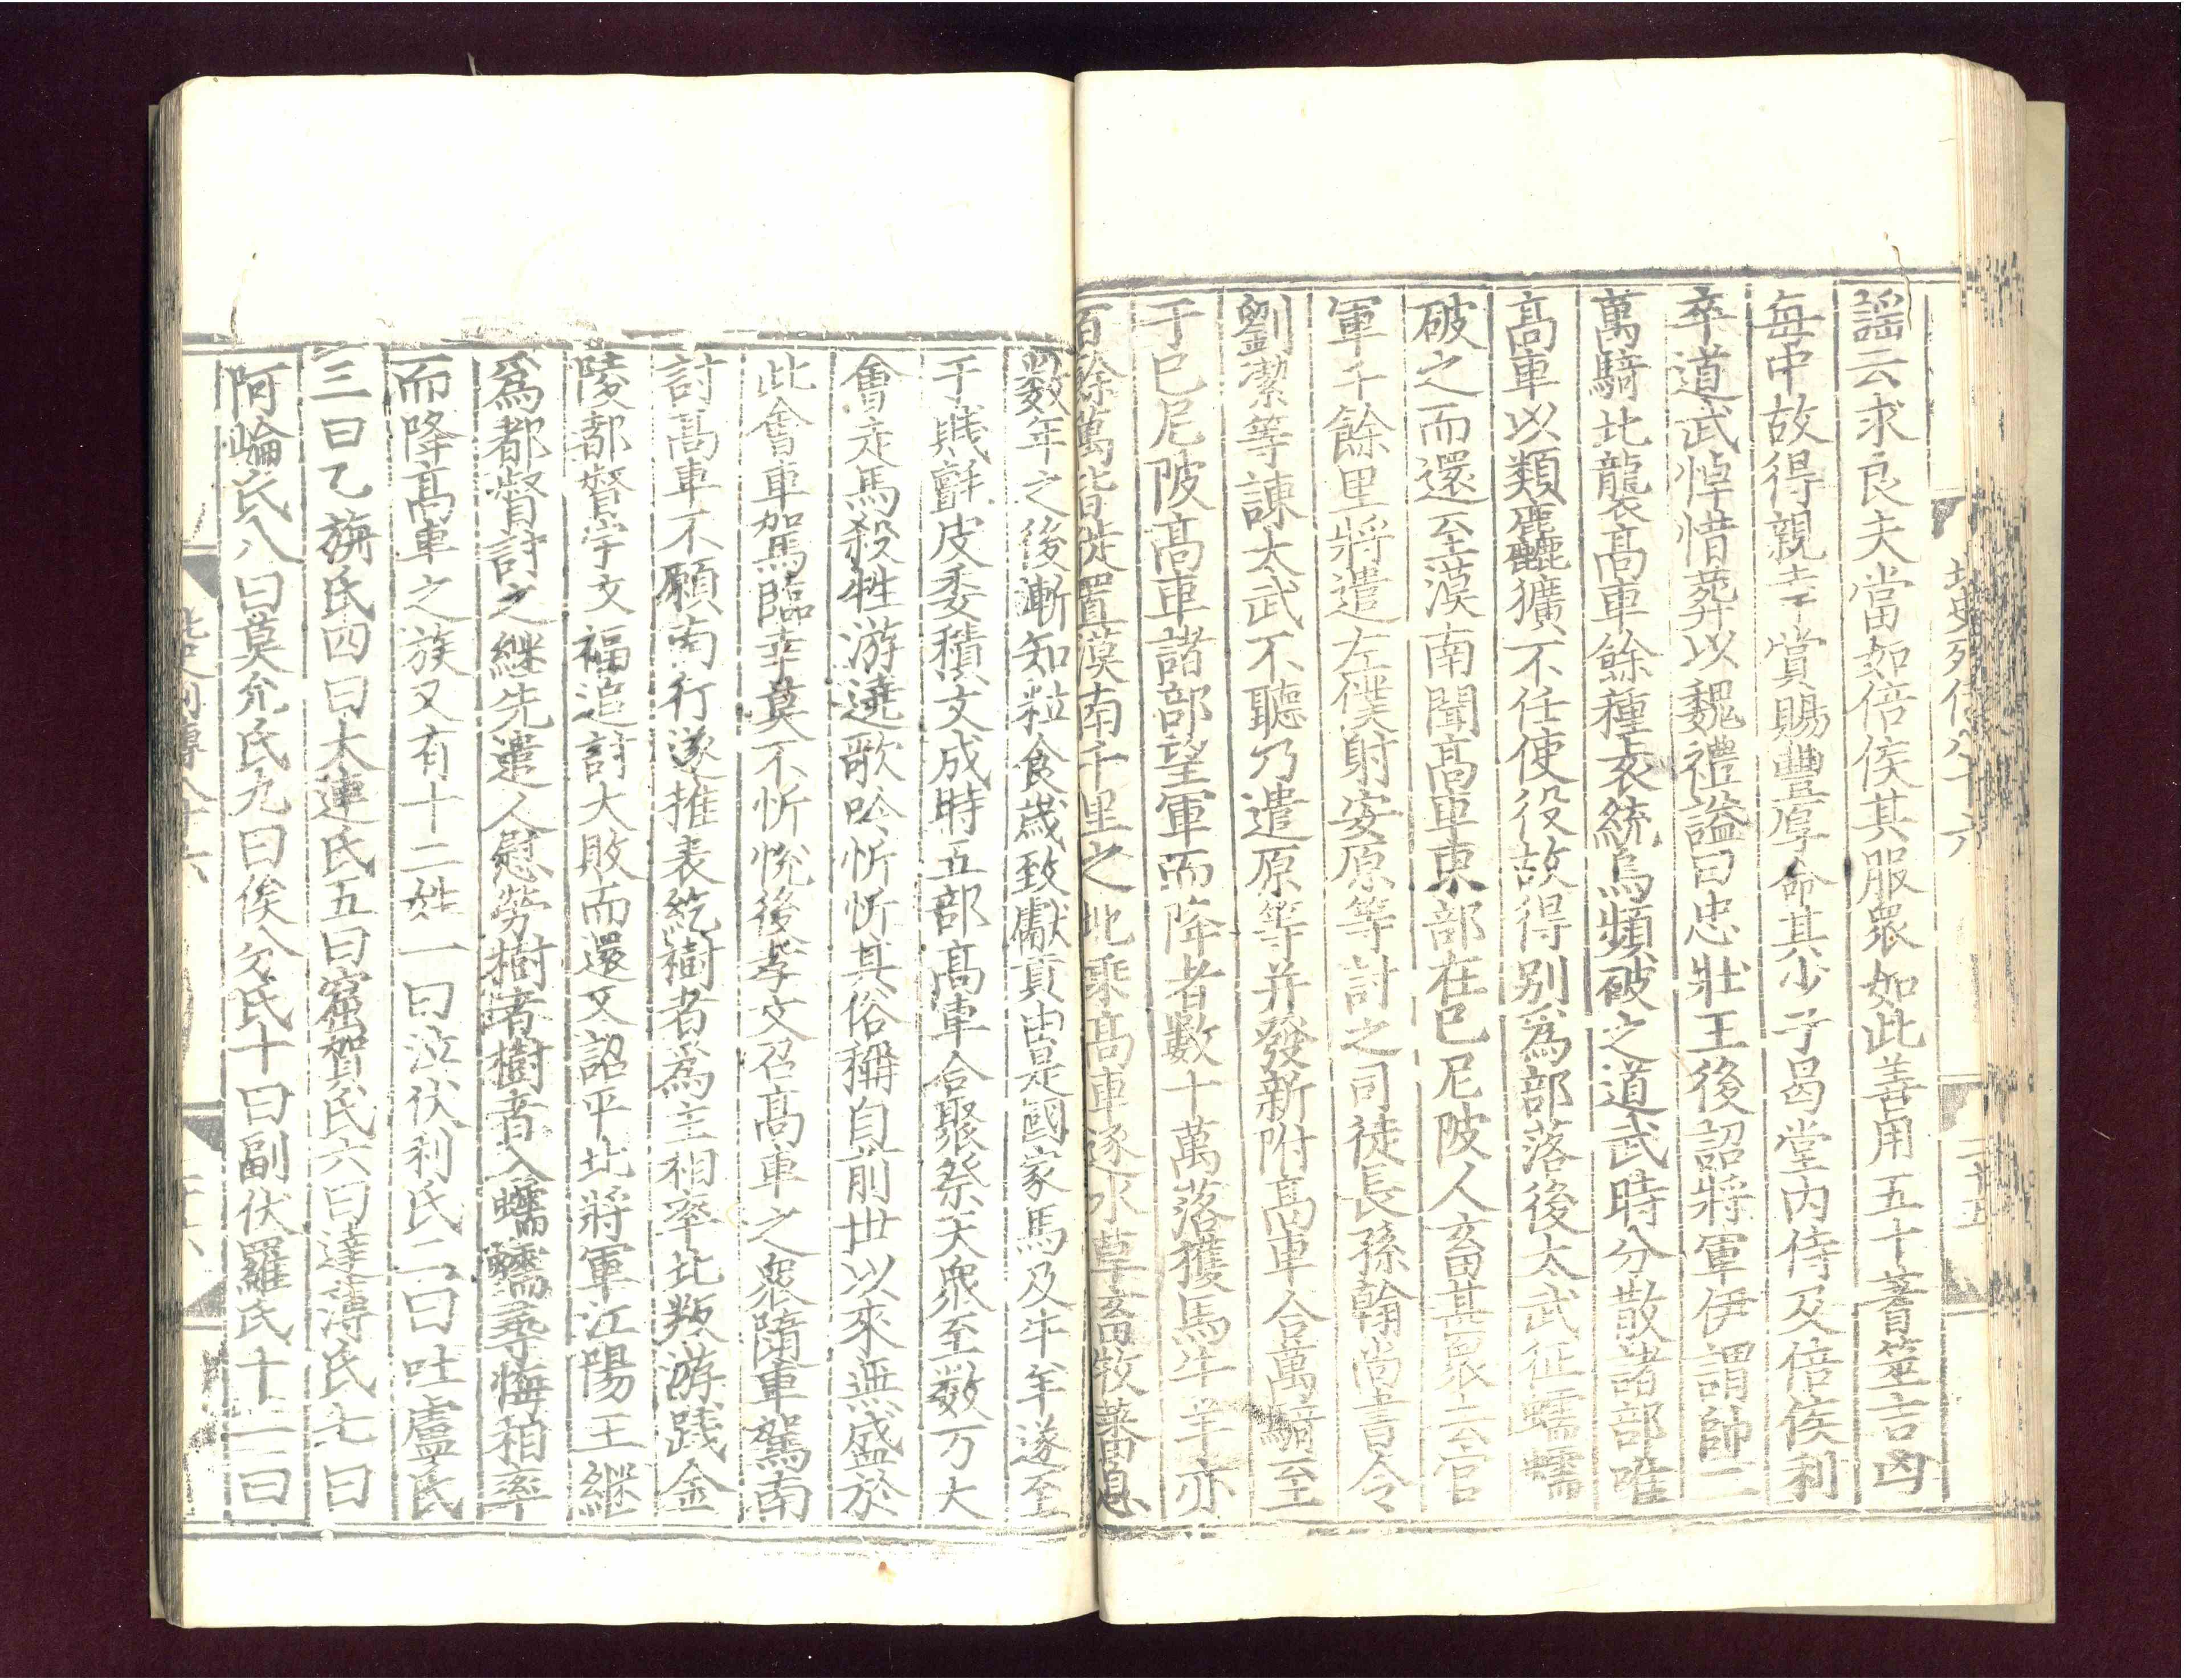 北史列傳八十六
二十五
謡云求良夫當如倍侯其服衆如此善用五十蓍筮吉凶
每中故得親幸賞賜豐厚命其少子曷堂内侍及倍侯利
卒道武悼惜葬以魏禮謚曰忠壯王後詔將軍伊謂帥二
萬騎北襲髙車餘種袁統烏頻破之道武時分散諸部唯
髙車以類麤獷不任使役故得别爲部落後太武征蠕蠕
破之而還至漠南聞髙車東部在巳尼陂人畜甚衆去官
軍千餘里將遣左僕射安原等討之司徒長孫翰尚書令
劉潔等諫太武不聽乃遣原等并發新附髙車合萬騎至
于巳尼陂髙車諸部望軍而降者數十萬落獲馬牛羊亦
百餘萬皆徙置漠南千里之地乘髙車逐水草畜牧蕃息
數年之後漸知粒食歳致獻貢由是國家馬及牛羊遂至
于賤氈皮委積文成時五部髙車合聚祭天衆至数万大
會走馬殺牲游遶歌吟忻忻其俗稱自前世以來無盛於
此會車駕臨幸莫不忻恱後孝文召髙車之衆隨車駕南
討髙車不願南行遂推表紇樹者爲主相率北叛游踐金
陵都督宇文福追討大敗而還又詔平北將軍江陽王継
爲都督討之継先遣人慰勞樹者樹者入蠕蠕尋悔相率
而降髙車之族又有十二姓一曰泣伏利氏二曰吐盧氏
三曰乙旃氏四曰大連氏五曰窟賀氏六曰達薄氏七曰
阿崘氏八曰莫允氏九曰俟分氏十曰副伏羅氏十一曰
北史列傳八十六